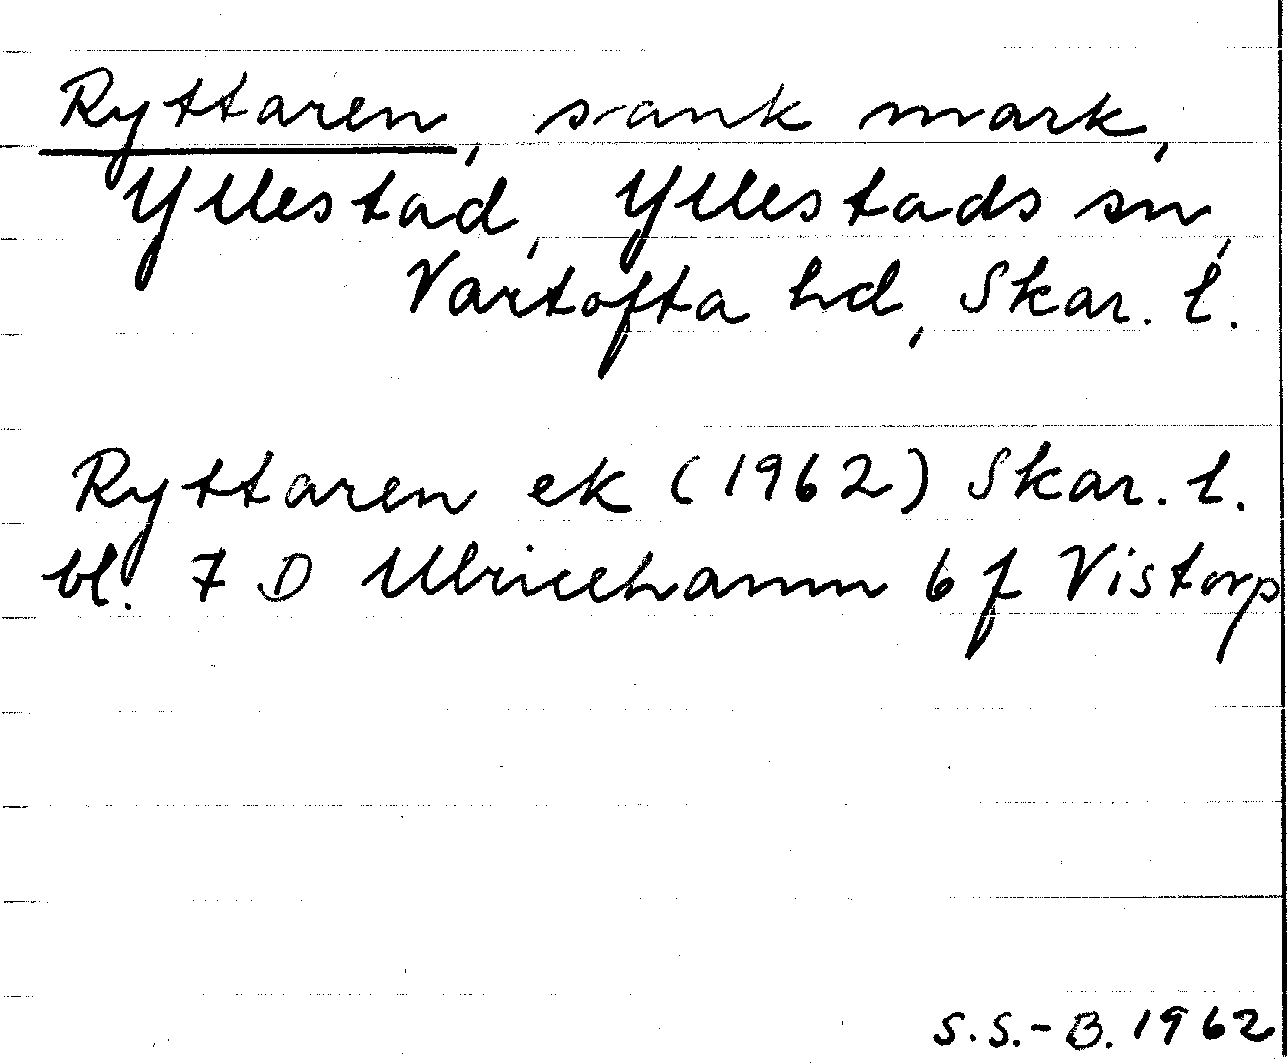 Ryttaren, sank mark,
Yllestad, Yllestads sn,
Vartofta hd, Skar. l.
Ryttaren ek (1962) Skar. l.
bl. 7 D Ulricehamn 6 f Vistorp
S.S.-B. 1962